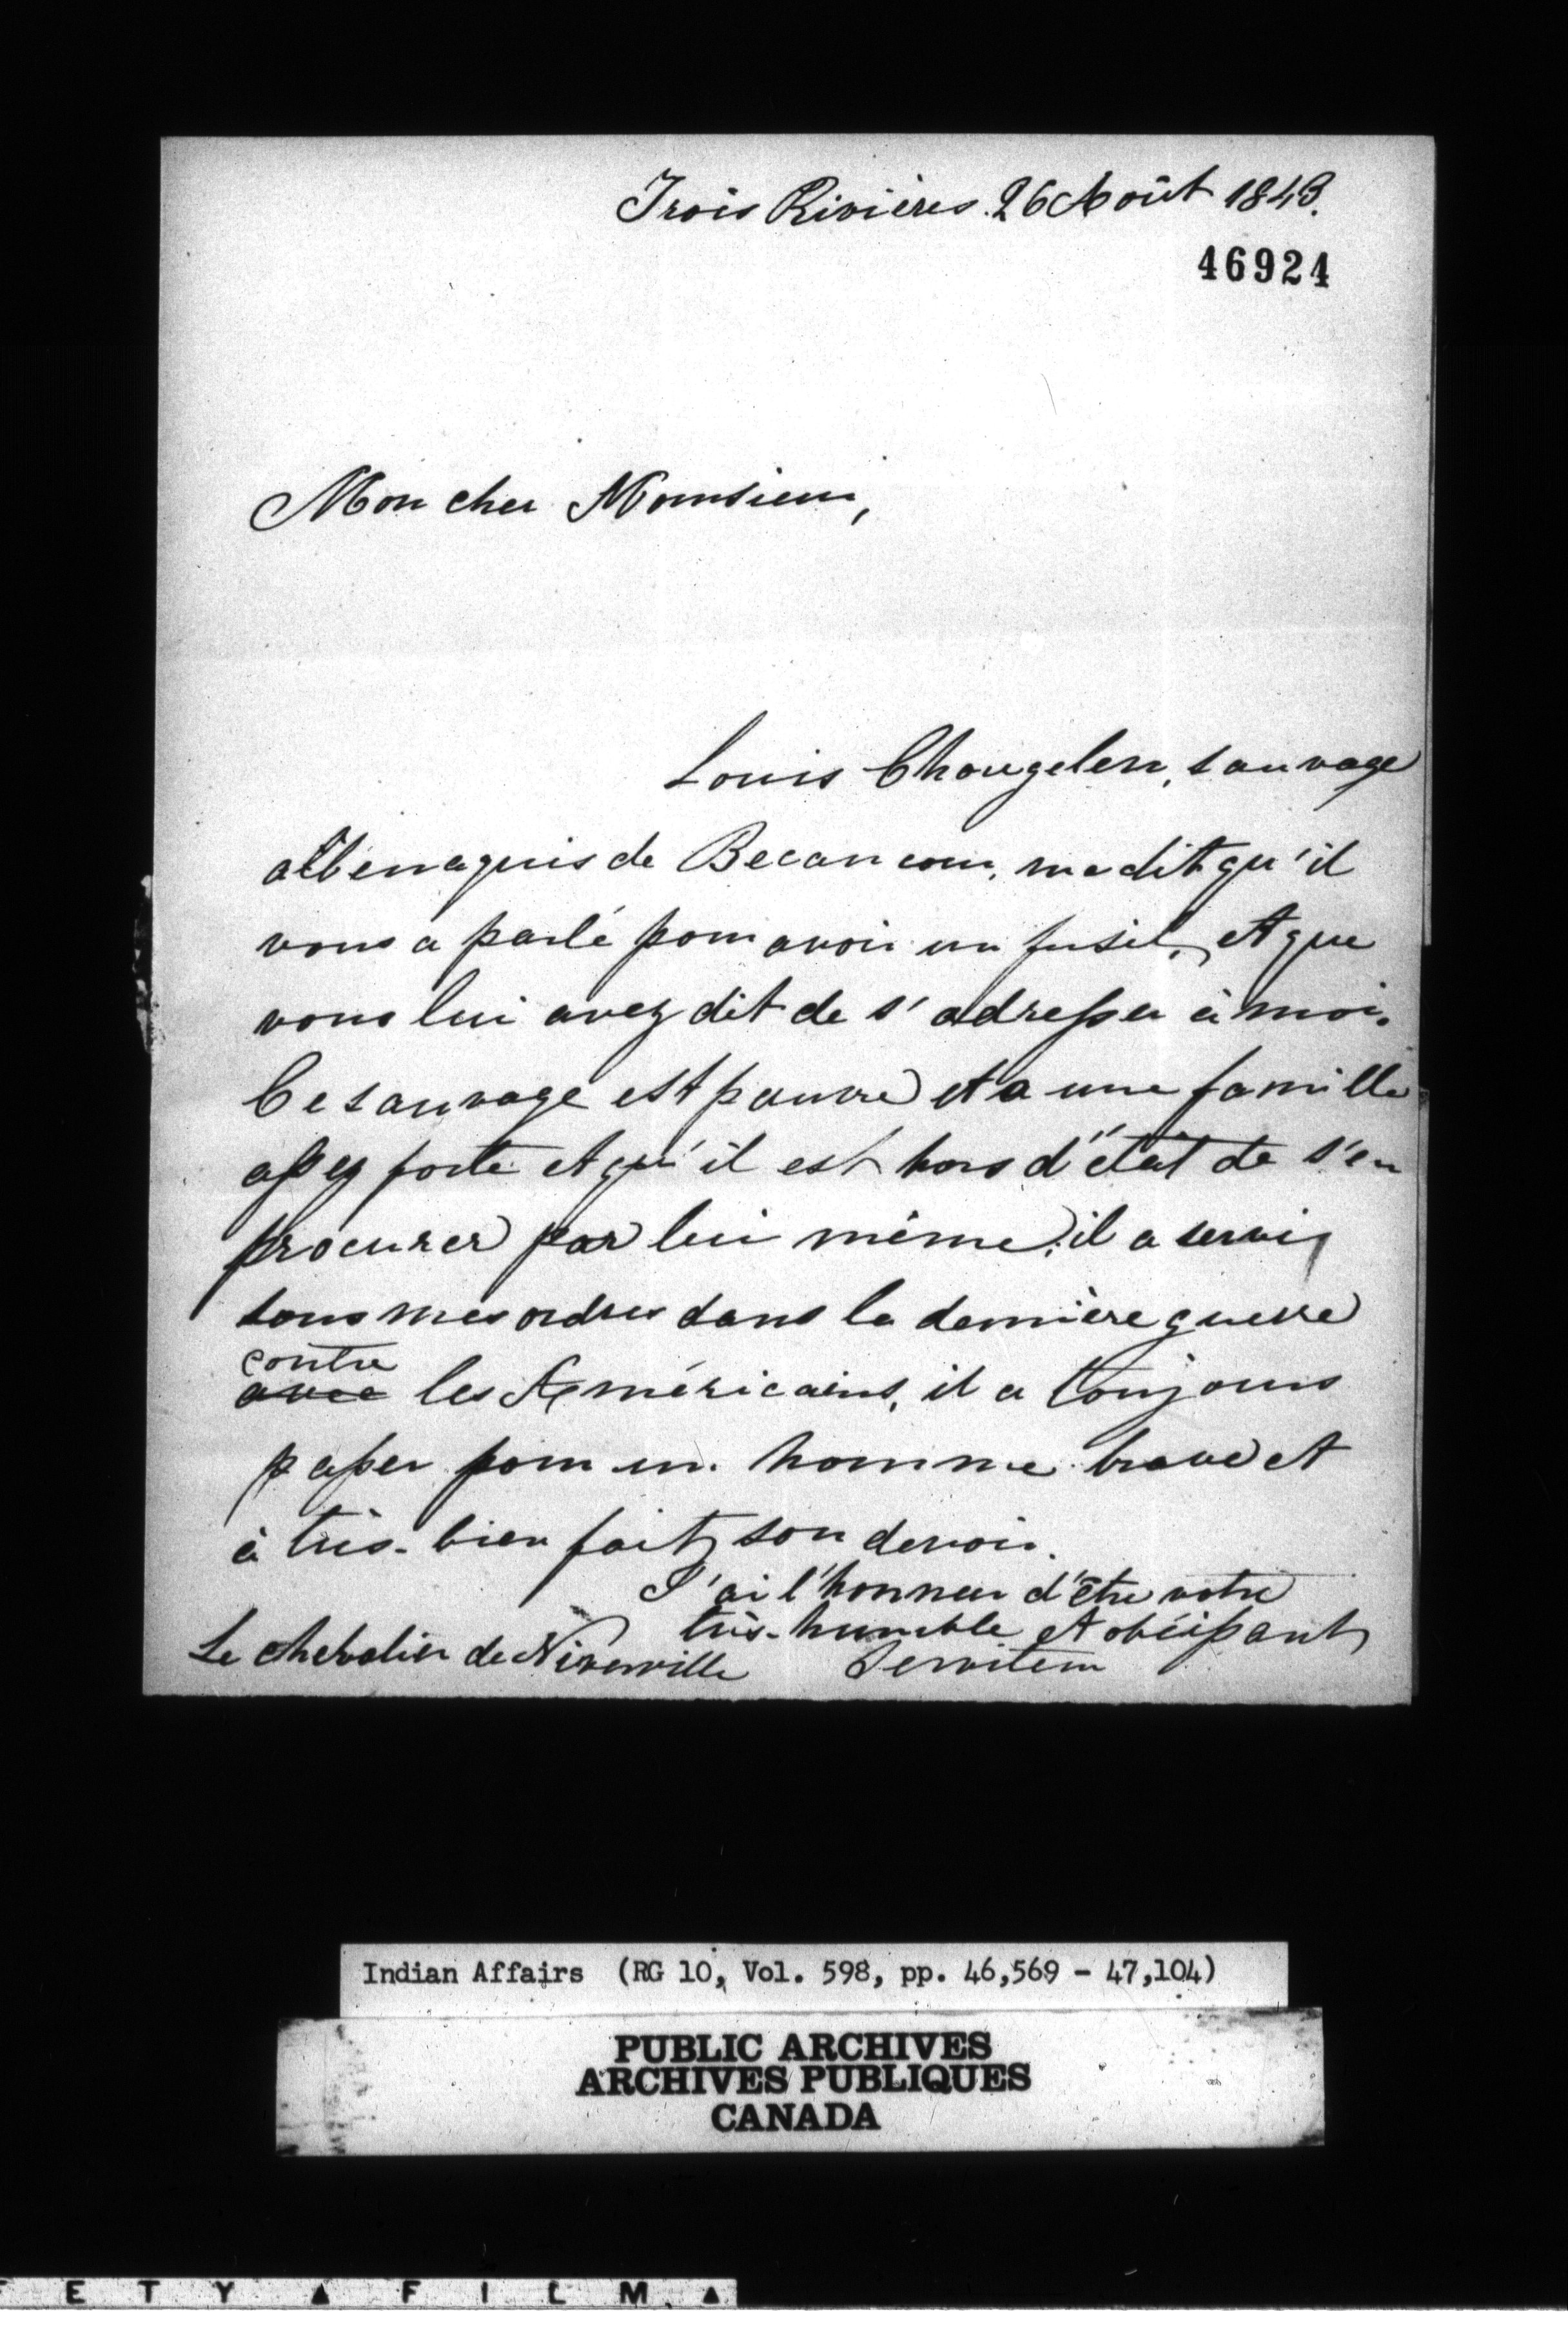 Trois Rivières. 26 Août 1843.
46924
Mon cher Monsieur,
Louis Chougelen, sauvage
abbenaquis de Becancour, me dit qu'il
vous a parlé pour avoir un fusil, et que
vous lui avez dit de s'adresser à moi.
Ce sauvage est pauvre et a une famille
assez forte et qu'il est hors d'état de s'en
procurer par lui même; il a servis
sous mes ordres dans la dernière guerre
contre
avec les Américains, il a toujours
passer pour un homme brave et
à très-bien fait son devoir.
J'ai l'honneur d'être votre
très-humble et obéissant
Le chevalier de Niverville Serviteur
Indian Affairs (RG 10, Vol. 598, pp. 46,569 - 47,104)
PUBLIC ARCHIVES
ARCHIVES PUBLIQUES
CANADA
ETY ▲ FILM ▲